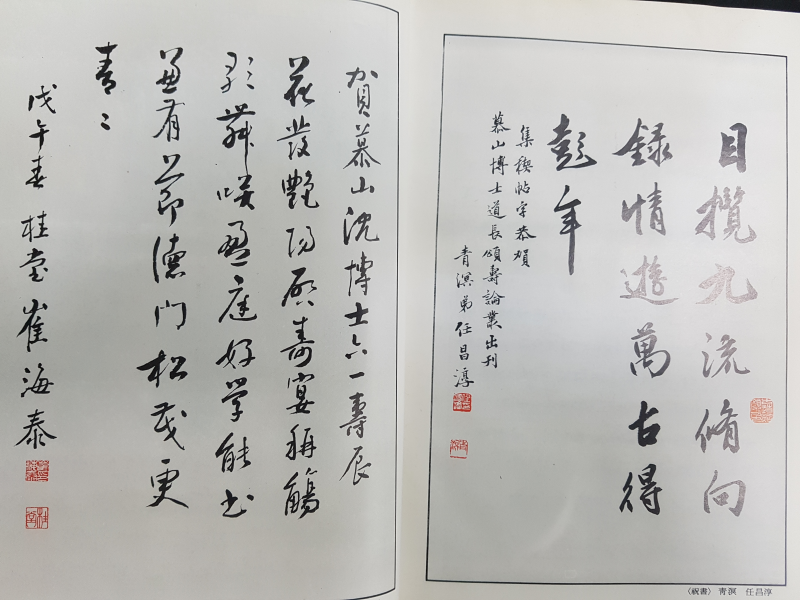 目攬九流脩向
錄情遊萬古得
彭年
集稧帖字恭賀
慕山博士道長頌壽論叢出刊
青溟弟任昌淳
〈祝書〉 靑溟 任昌淳
賀慕山沈博士六一壽辰
花發艷陽啓壽宴稱觴
彩舞咲盈庭好學能書
兼有節德門松茂更
青〻
戊午春桂堂崔海泰